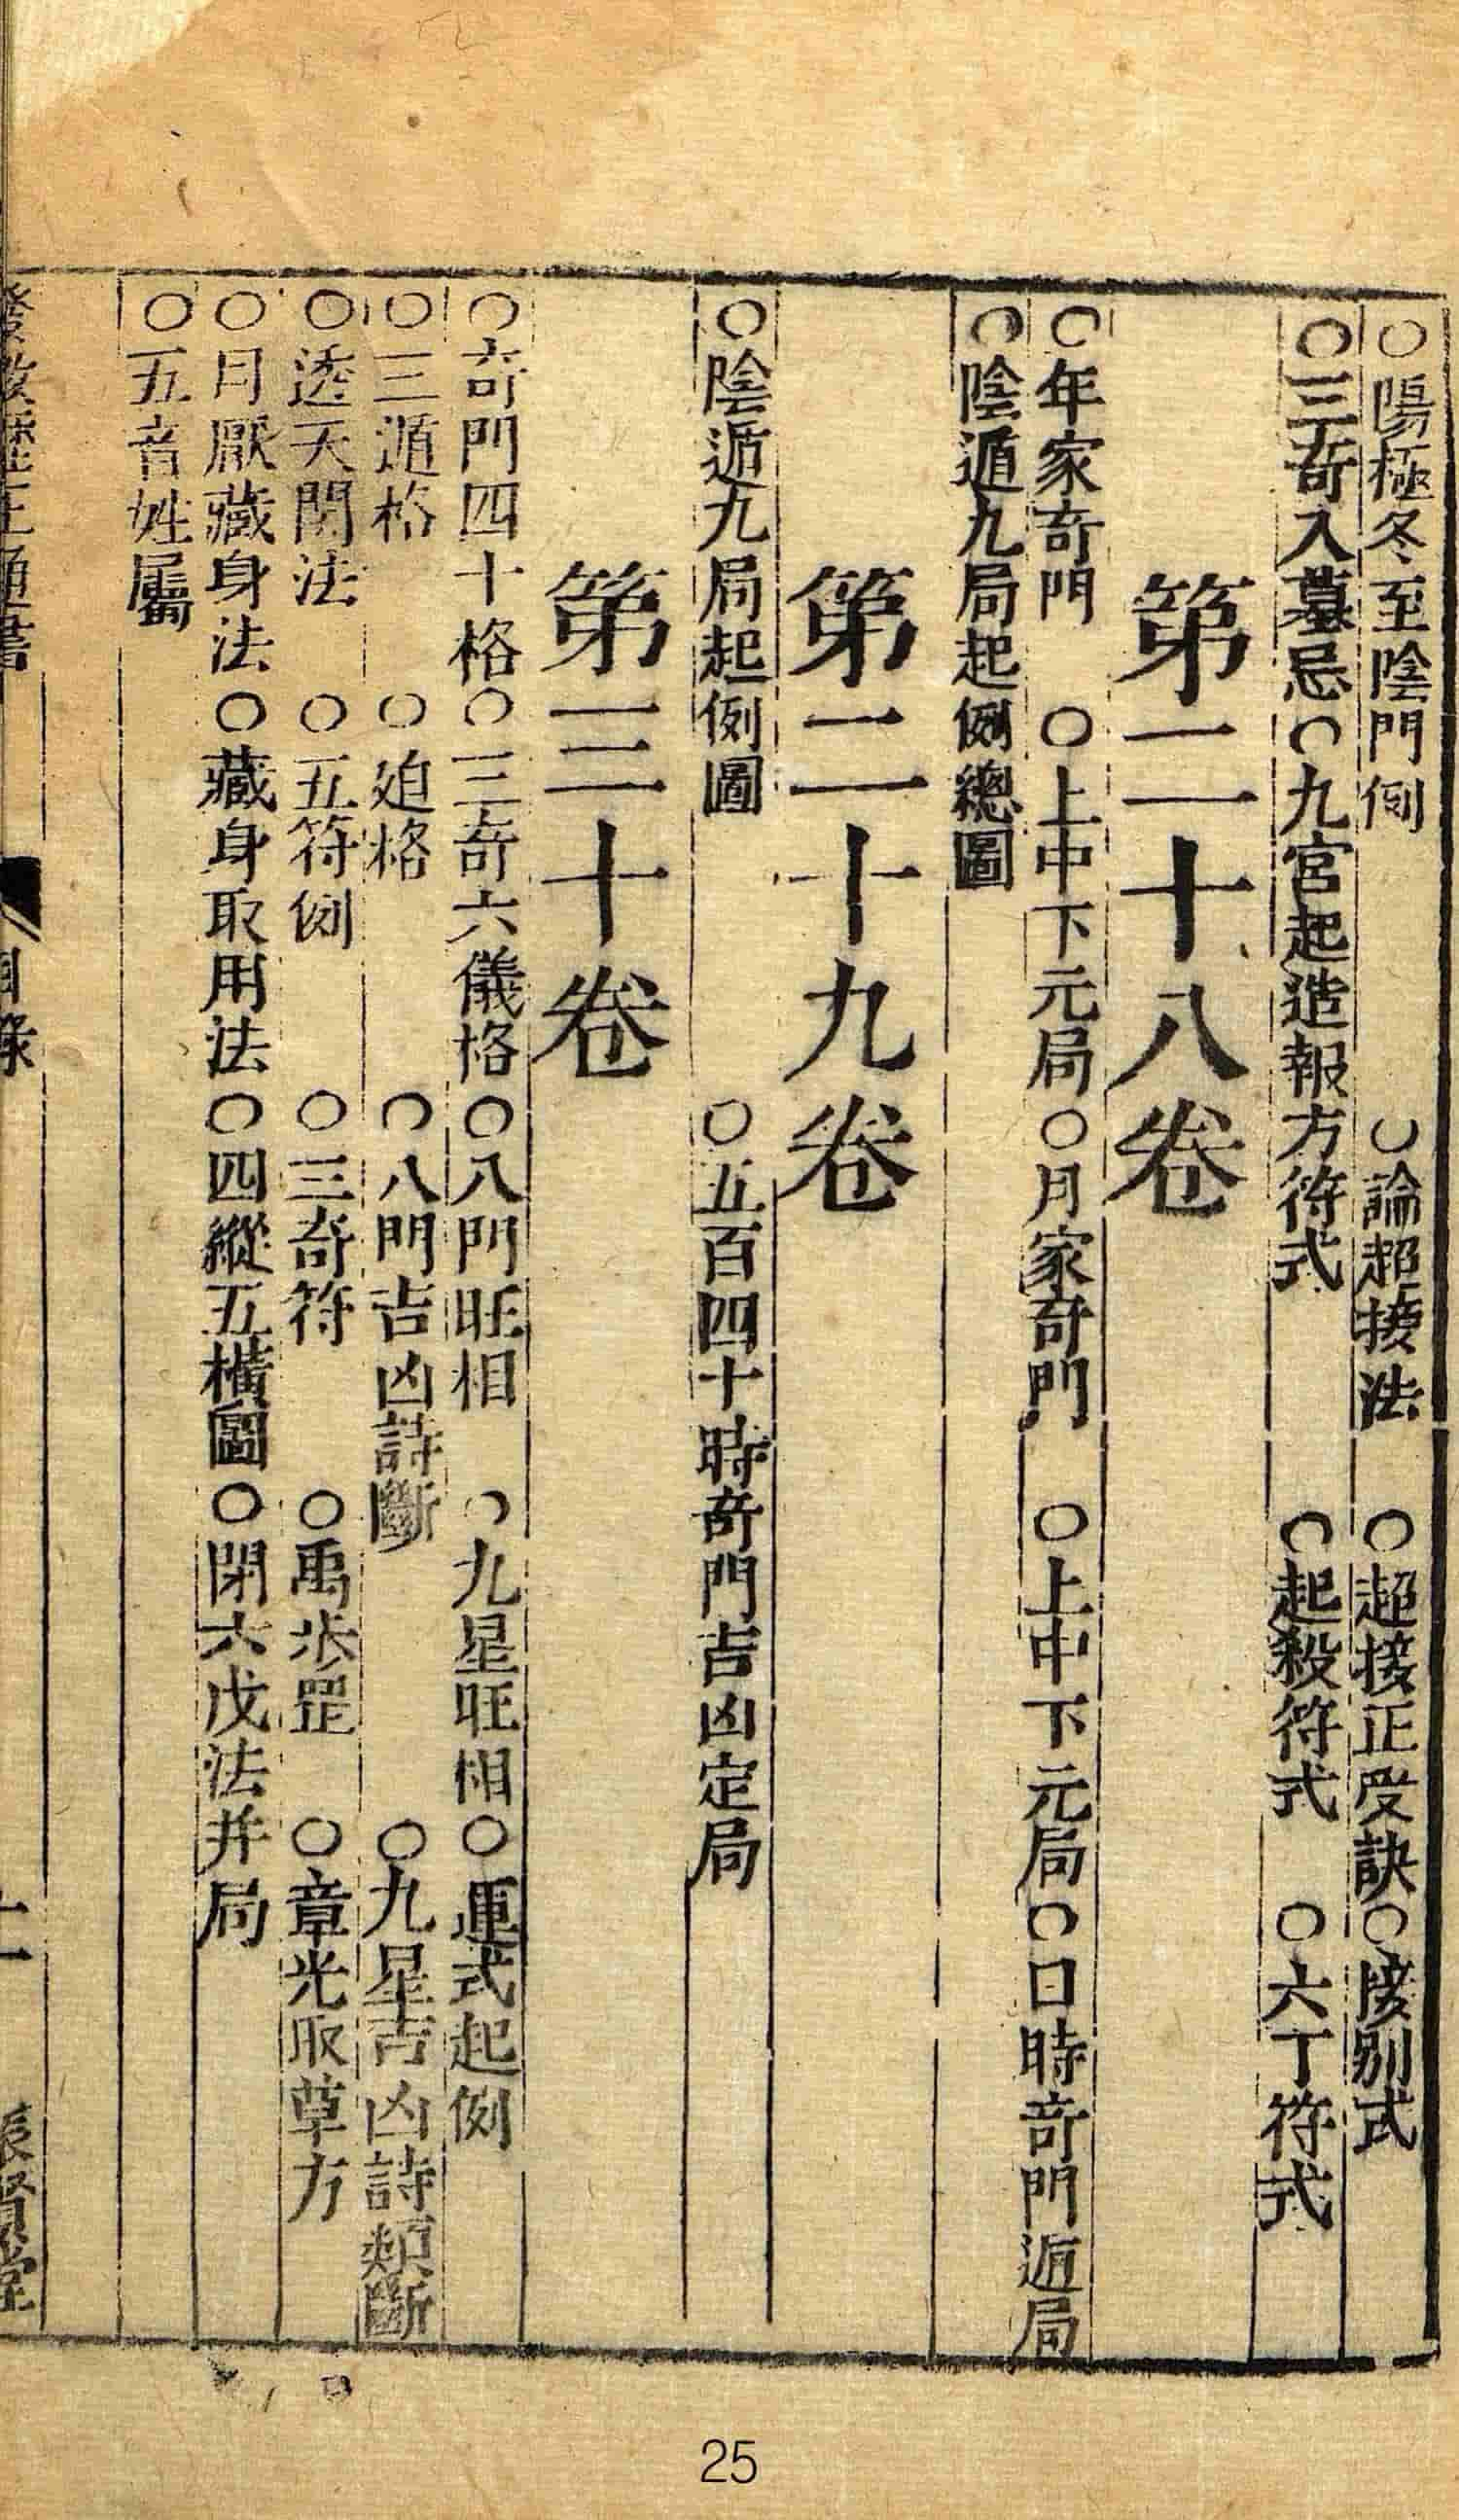 ○陽極冬至陰門例○論超接法○超接正受訣○接別式
○三奇入墓忌○九宮起造報方符式○起殺符式○六丁符式
第二十八卷
○年家奇門○上中下元局○月家奇門○上中下元局○日時奇門遁局
○陰遁九局起例總圖
第二十九卷
○陰遁九局起例圖○五百四十時奇門吉凶定局
第三十卷
○奇門四十格○三奇六儀格○八門旺相○九星旺相○運式起例
○三遁格○迫格○八門吉凶詩斷○九星吉凶詩類斷
○透天關法○五符例○三奇符○禹步罡○章光取草方
○月厭藏身法○藏身取用法○四縱五橫圖○閉六戊法并局
○五音姓屬
目錄
25